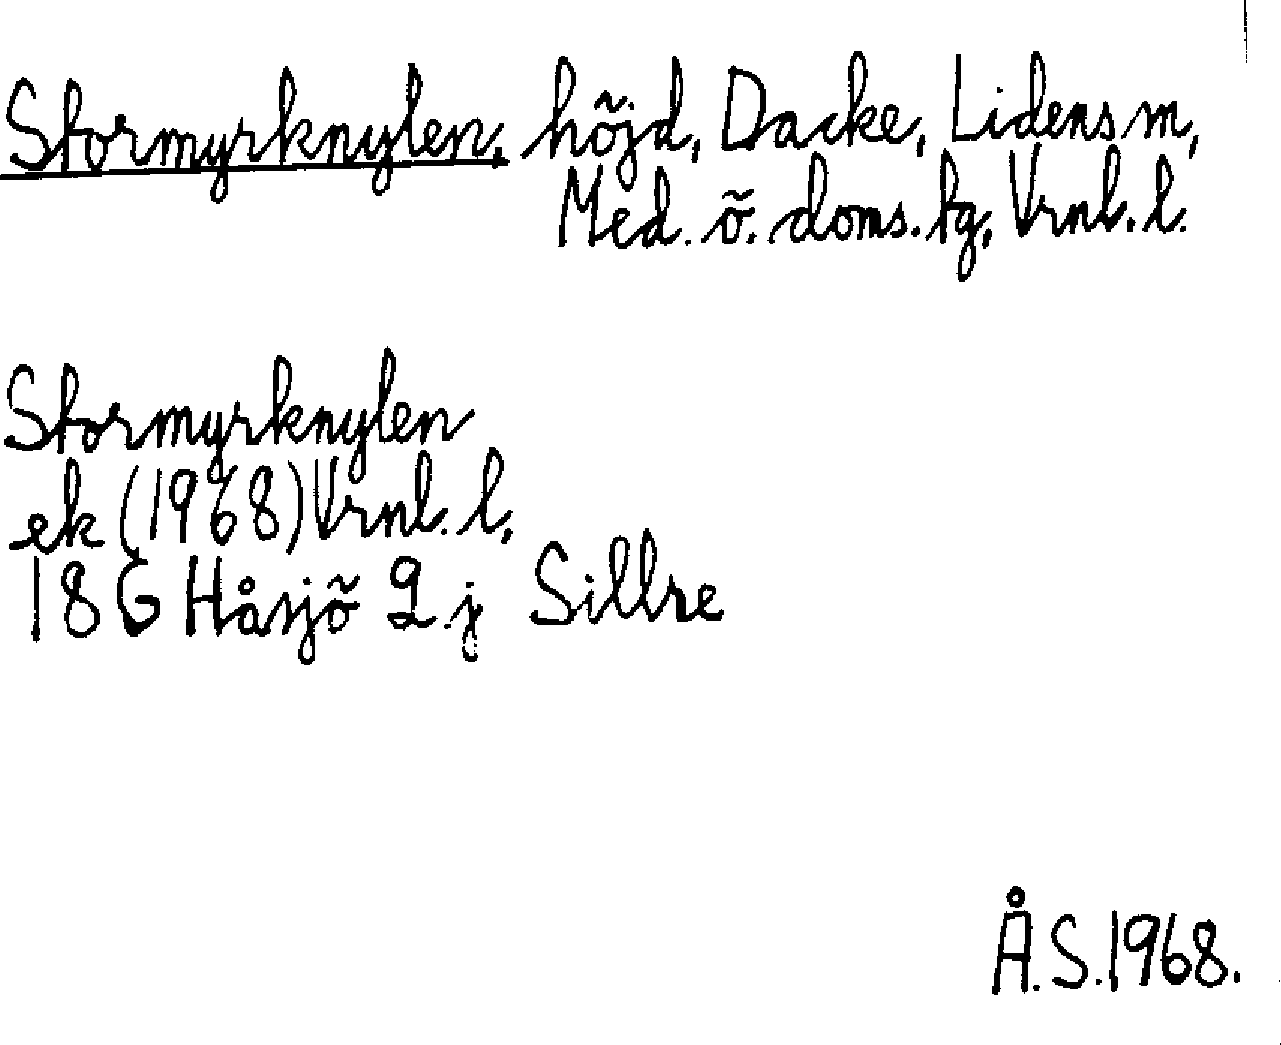 Stormyrknylen, höjd, Dacke, Lidens sn,
Med. ö. doms. tg, Vrnl. l.
Stormyrknylen
ek (1968) Vrnl. l,
18G Håsjö 9 j Sillre
Å.S. 1968.